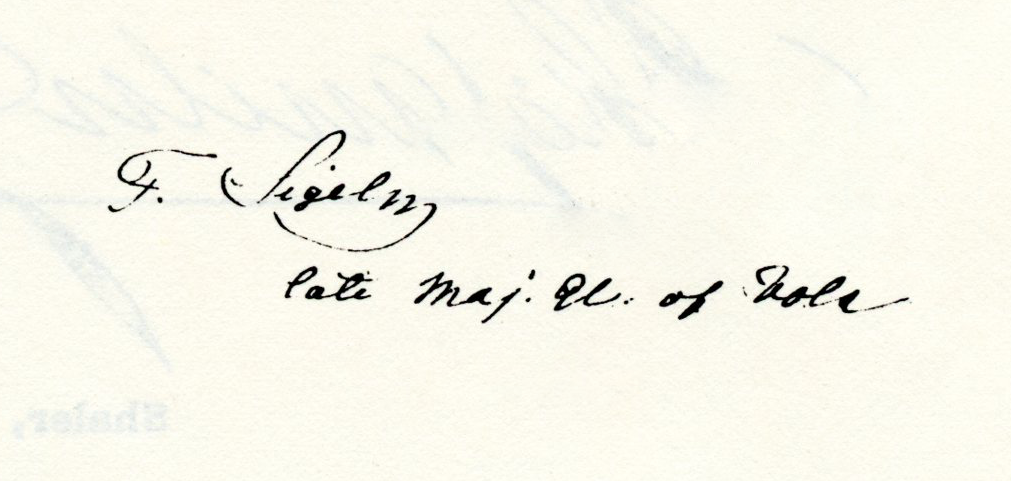 F. Sigel
late Maj. Gl. of Vols
Shaler,